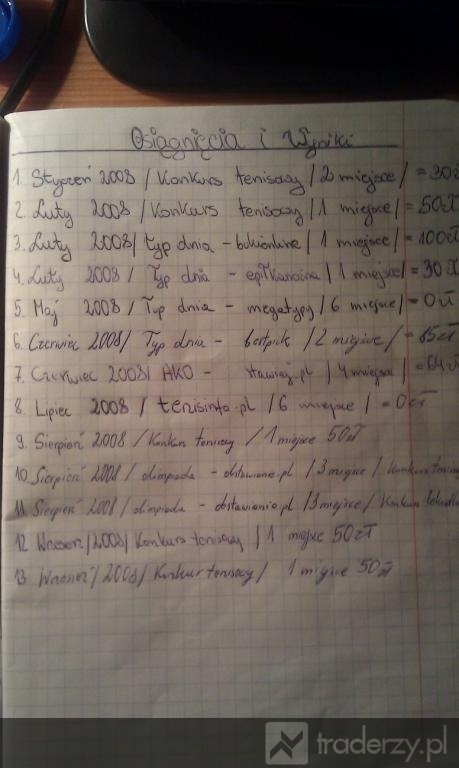 Osiągnięcia i Wyniki
1. Styczeń 2008 / Konkurs tenisowy / 2 miejsce / = 30zł
2. Luty 2008 / Konkurs tenisowy / 1 miejsce / = 50zł
3. Luty 2008 / Typ dnia - / 1 miejsce / = 100zł
4. Luty 2008 / Typ dnia - / 1 miejsce / = 30 zł
5. Maj 2008 / Typ dnia - megatypy / 6 miejsce / = 0zł
6. Czerwiec 2008 / Typ dnia - / 2 miejsce / =
7. Czerwiec 2008 / AKO - stawiaj.pl / 4 miejsce / = 64zł
8. Lipiec 2008 / tenisinfo.pl / 6 miejsce / = 0zł
9. Sierpień 2008 / Konkurs tenisowy / 1 miejsce 50zł
10. Sierpień 2008 / olimpiada - obstawianie.pl / 3 miejsce /
11. Sierpień 2008 / olimpiada - obstawianie.pl / 3 miejsce /
12 / 2008 / Konkurs tenisowy / 1 miejsce 50zł
13 / 2008 / Konkurs tenisowy / 1 miejsce 50 zł
traderzy.pl